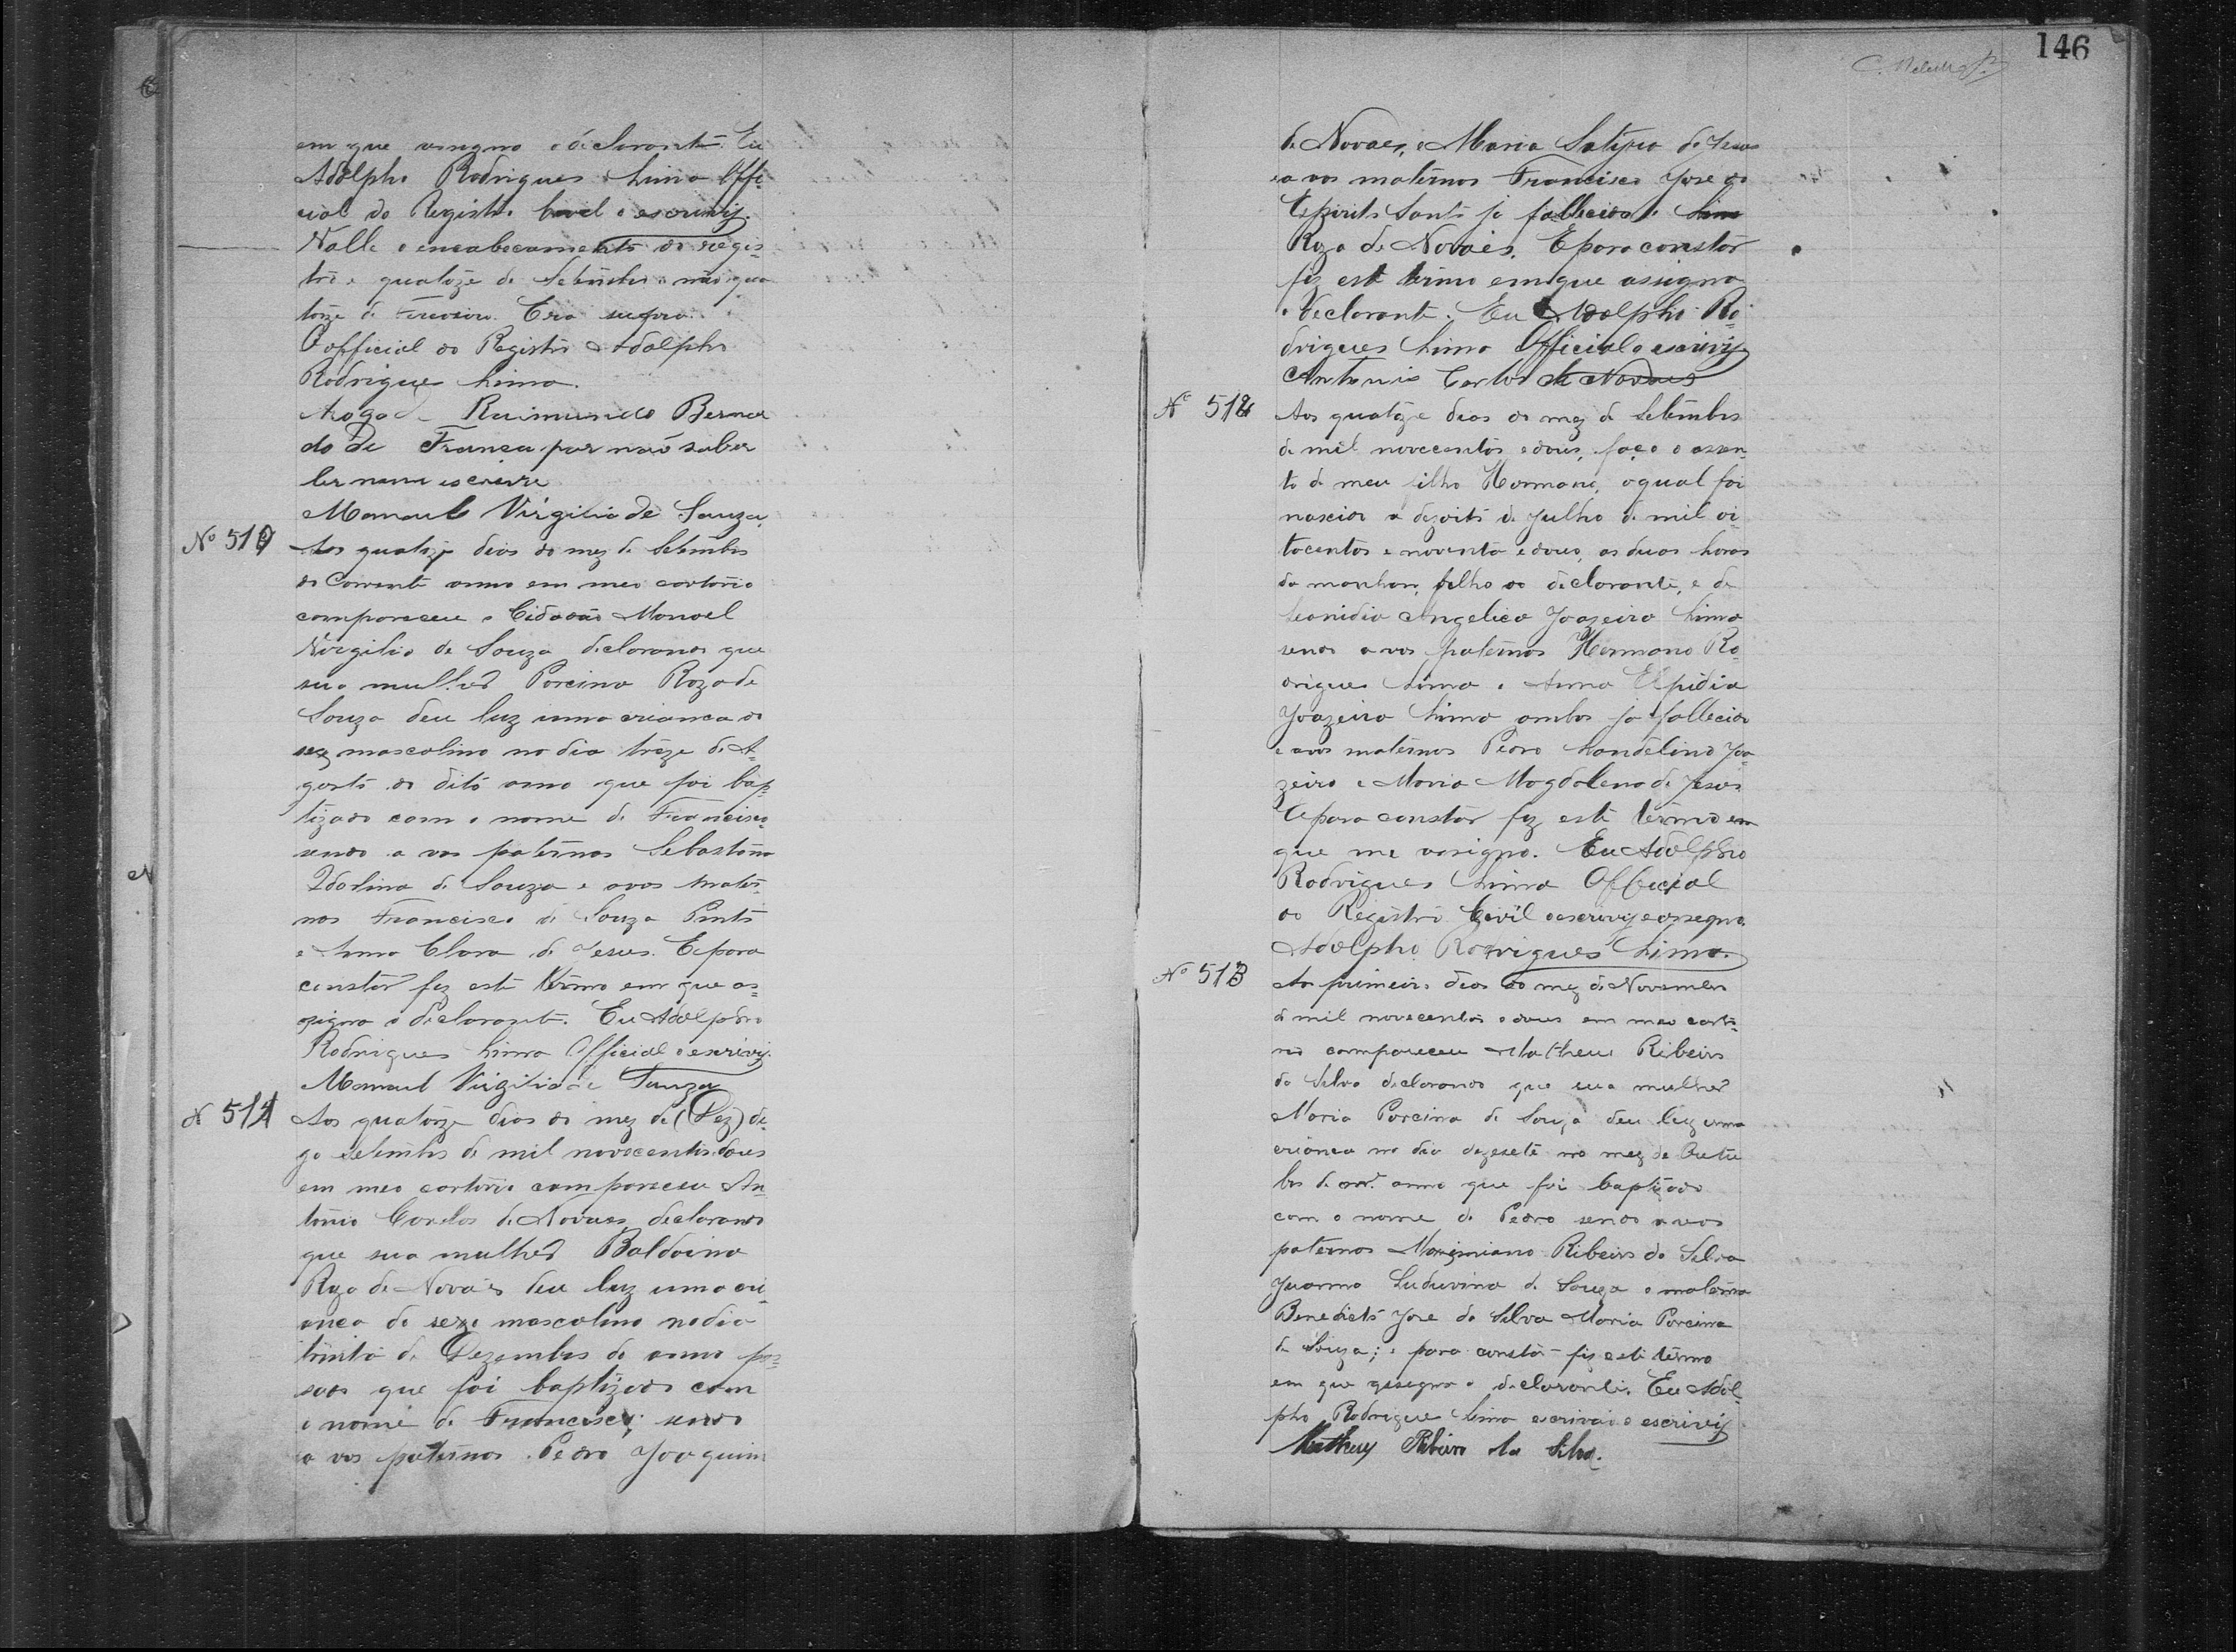 em que assigna o declarante. Eu
Adolpho Rodrigues Lima Offi-
cial do Registro Civel o escrevij.
Nalle o encabecamento do regis-
tro e quatôze de Setembro e não qua
torze de Fevereiro. Era supra.
O official do Registro Adolpho
Rodrigues Lima.
Arogo de Raimundo Bernar
do de França par naõ saber
ler nem escrevre
Manoel Virgilio de Souza
Nº 510 Aos quatoze dias do mez de Setembro
do Corrente anno em meo cartorio
compareceu o Cidadão Manoel
Virgilio de Souza declarando que
sua mulher Porcina Roza de
Souza deu luz uma crianca do
sexo mascolino no dia trêze de A-
gosto do dito anno que foi bap-
tizado com o nome de Francisco
sendo a vos paternos Sebastôna
Idolina de Souza e avos mater-
nos Francisco de Souza Pinto
e Anna Clara de Jesus. E para
constar fez este termo em que as-
signa o declarante. Eu Adolpho
Rodrigues Lima Official o escrevij.
Manoel Virgilio de Souza
N 511 Aos quatorze dias do mez de (Dez) de-
go Setembro de mil novecentos e dous
em meo cartorio compareceu An-
tônio Carlos de Novaes declarando
que sua mulher Baldoina
Roza de Novaes deu luz uma cri-
anca do sexo mascolino no dia
trinta de Dezembro do anno pas-
sado que foi baptizado com
o nome de Francisco; sendo
a vos paternos Pedro Joaquim
146
de Novaes, e Maria Satyra de Jesus
e a vos maternos Francisco Jose do
Espirito Santo ja fallecido e
Roza de Novaes. E para constar
fiz este termo em que assigna
o declarante. Eu Adolpho Ro-
drigues Lima Official o escrevij
Antonio Carlos de Novaes
Nº 512 Aos quatoze dias do mez de Setembro
de mil novecentos e dous, faço o assen-
to de meu filho Hermano, o qual foi
nascido a dezoito de Julho de mil oi-
tocentos e noventa e dous, as duas horas
da manhan, filho do declarante, e de
Leonidia Angelica Joazeiro Lima
sendo a vos paternos Hermano Ro-
drigues Lima e Anna Elpidia
Joazeiro Lima ambos ja fallecido
e avos maternos Pedro Landelino Joa-
zeiro e Maria Magdalena de Jesus
E para constar fiz este termo em
que me assigno. Eu Adolpho
Rodrigues Lima Official
do Registro Civil o escrevij e assigno
Adolpho Rodrigues Lima.
Nº 513 Ao primeiro dias do mez de Novembro
de mil novecentos e dous em meo carto-
rio compareceu Matheus Ribeiro
da Silva declarando que sua mulher
Maria Porcina de Souza deu luz uma
crianca no dia dezesete no mez de Outu
bro de anno que foi baptizado
com o nome de Pedro sendo avos
paternos Maximiano Ribeiro da Silva
Joanna Luduvina de Souza e materno
Benedicto Jose da Silva Maria Porcina
de Souza; e para constar fiz este termo
em que assigna o declarante. Eu Adol-
pho Rodrigue Lima escrivão o escrevij
Matheus Ribeiro da Silva.